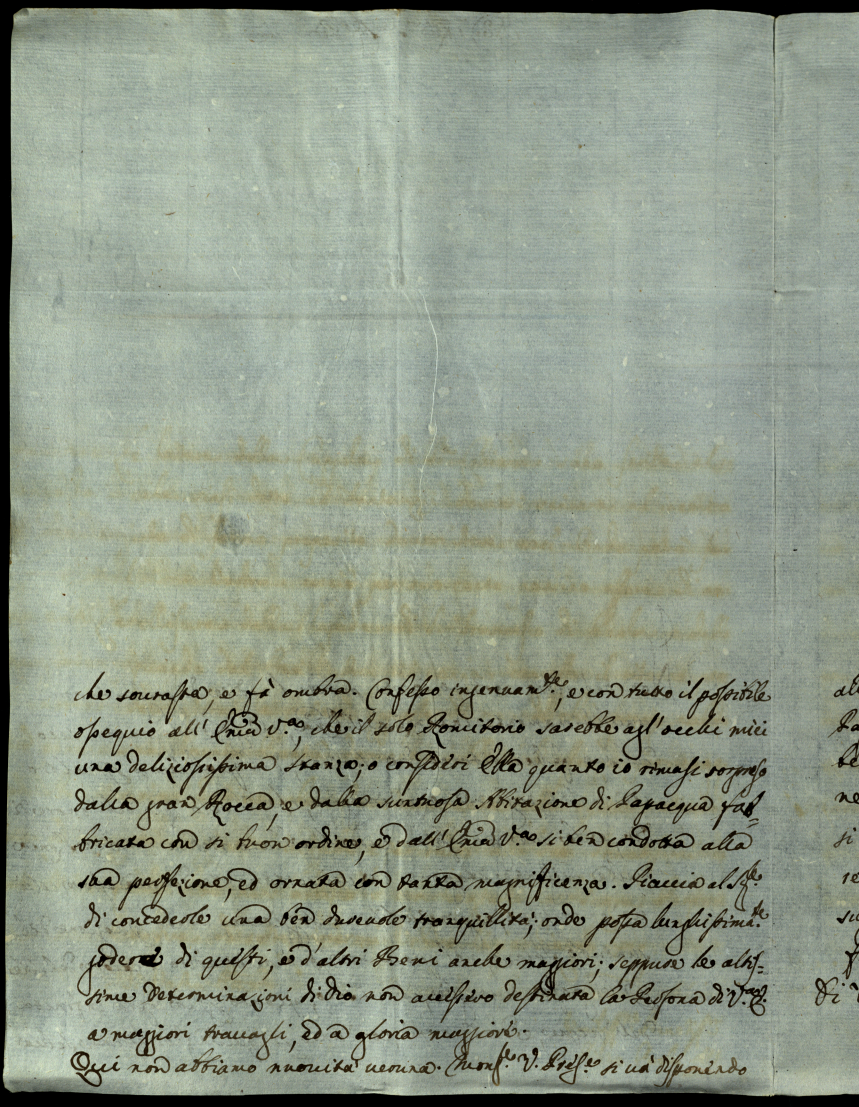 che sourasta, e fà ombra. Confesso ingenuam.te, e con tutto il possibile
ossequio all' Em.a V.a, che il solo Romitorio sarebbe agl'occhi miei
una deliziosissima stanza; o consideri Ella quanto io rimasi sorpreso
dalla gran Rocca, e dalla suntuosa Abitazione di Papacqua fab=
bricata con si buon ordine, e dall' Em.a V.a si ben condotta alla
sua perfezione, ed ornata con tanta magnificenza. Piaccia al Sig.re
di concederle una ben durevole tranquillità; onde possa lunghissimam.te
godere di questi, e d'altri Beni anche maggiori; seppure le altis=
sime Determinazioni di Dio non avessero destinata la Persona di V.a E.
a maggiori travagli, ed a gloria maggiore.
Qui non abbiamo nuovità veruna. Mons.r V. Pres.e si và disponendo
al
be
ne
si
su
Di